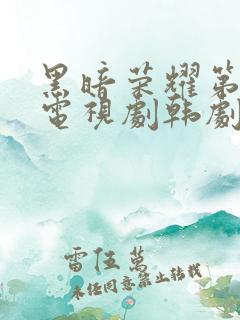 黑暗荣耀第
電視劇韩劇
雷伍萬
未经同意禁止转载